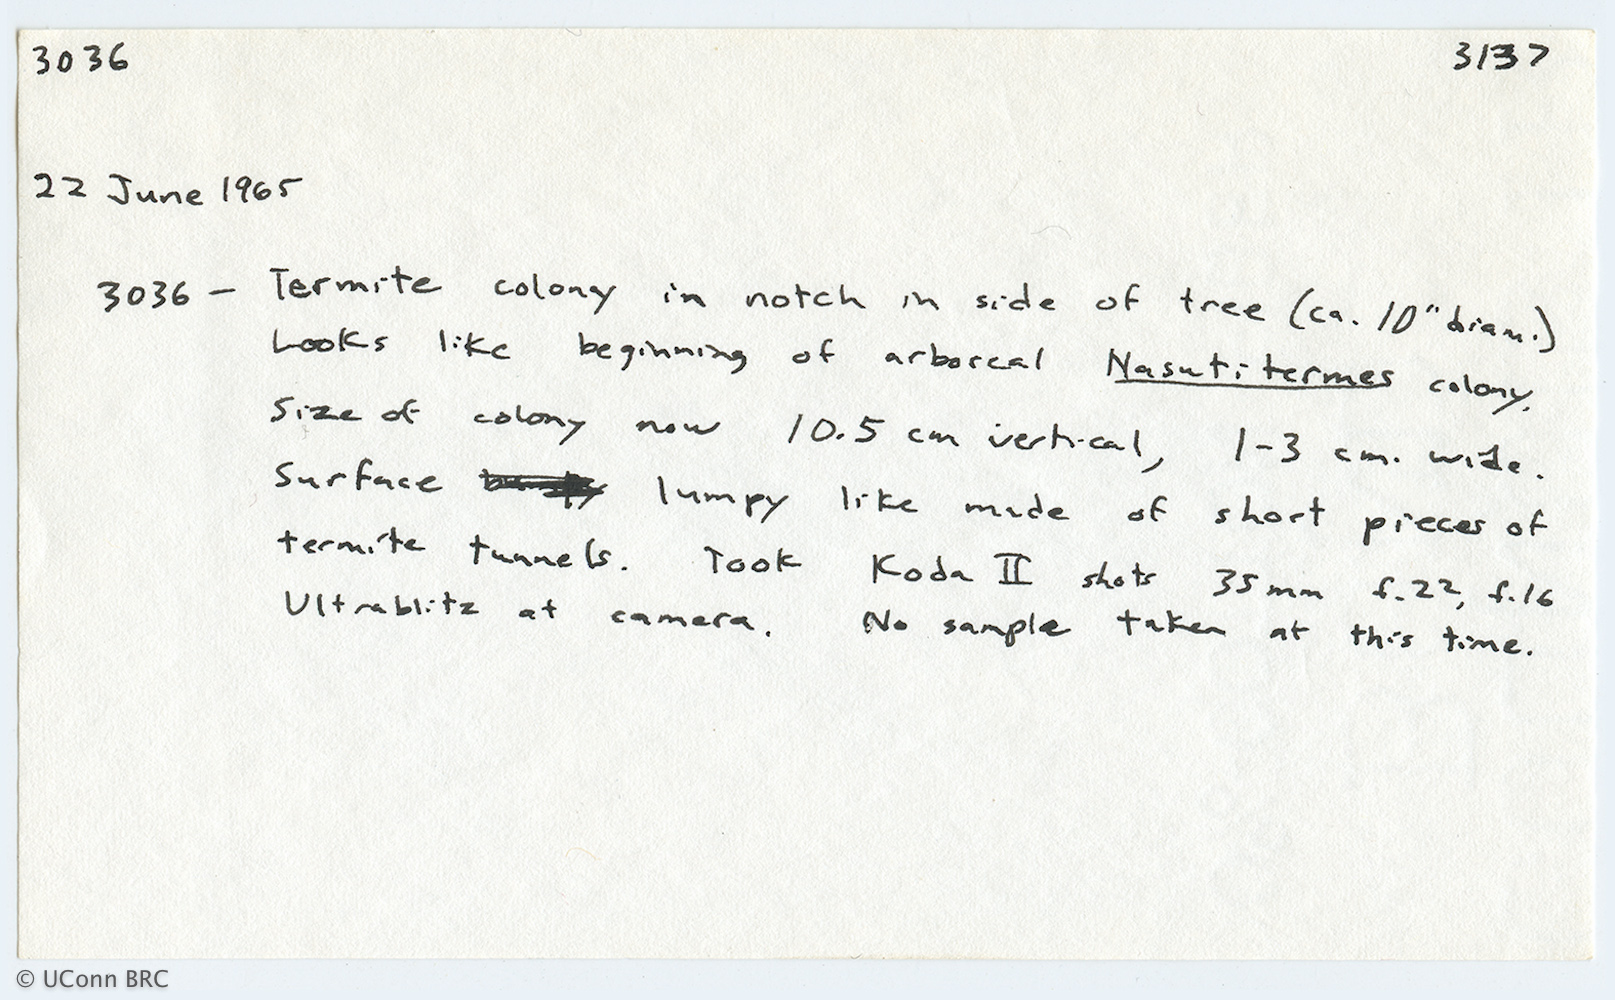 3036 3137
22 June 1965
3036 – Termite colony in notch in side of tree (ca. 10" diam.)
Looks like beginning of arboreal Nasutitermes colony.
Size of colony now 10.5 cm vertical, 1-3 cm. wide.
Surface lumpy like made of short pieces of
termite tunnels. Took Koda II shots 35mm f.22, f.16
Ultrablitz at camera. No sample taken at this time.
© UConn BRC